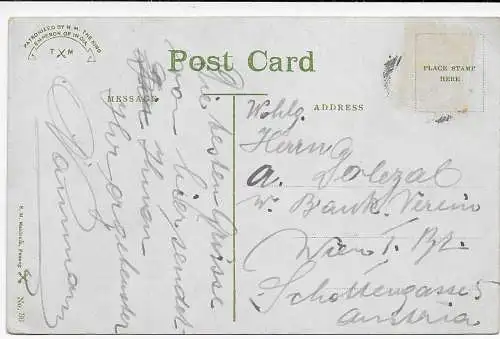 PATRONISED BY H.M. THE KING
EMPEROR OF INDIA.
T M
Post Card
PLACE STAMP
HERE
MESSAGE
ADDRESS
Die besten Grüsse
von hier sendet
Ihnen
Ihr ergebenster
Wohlg.
Herrn
A. Dolezal
W. Bank Verein
Wien I. Bz.
Schottengasse 5
Austria
No. 701